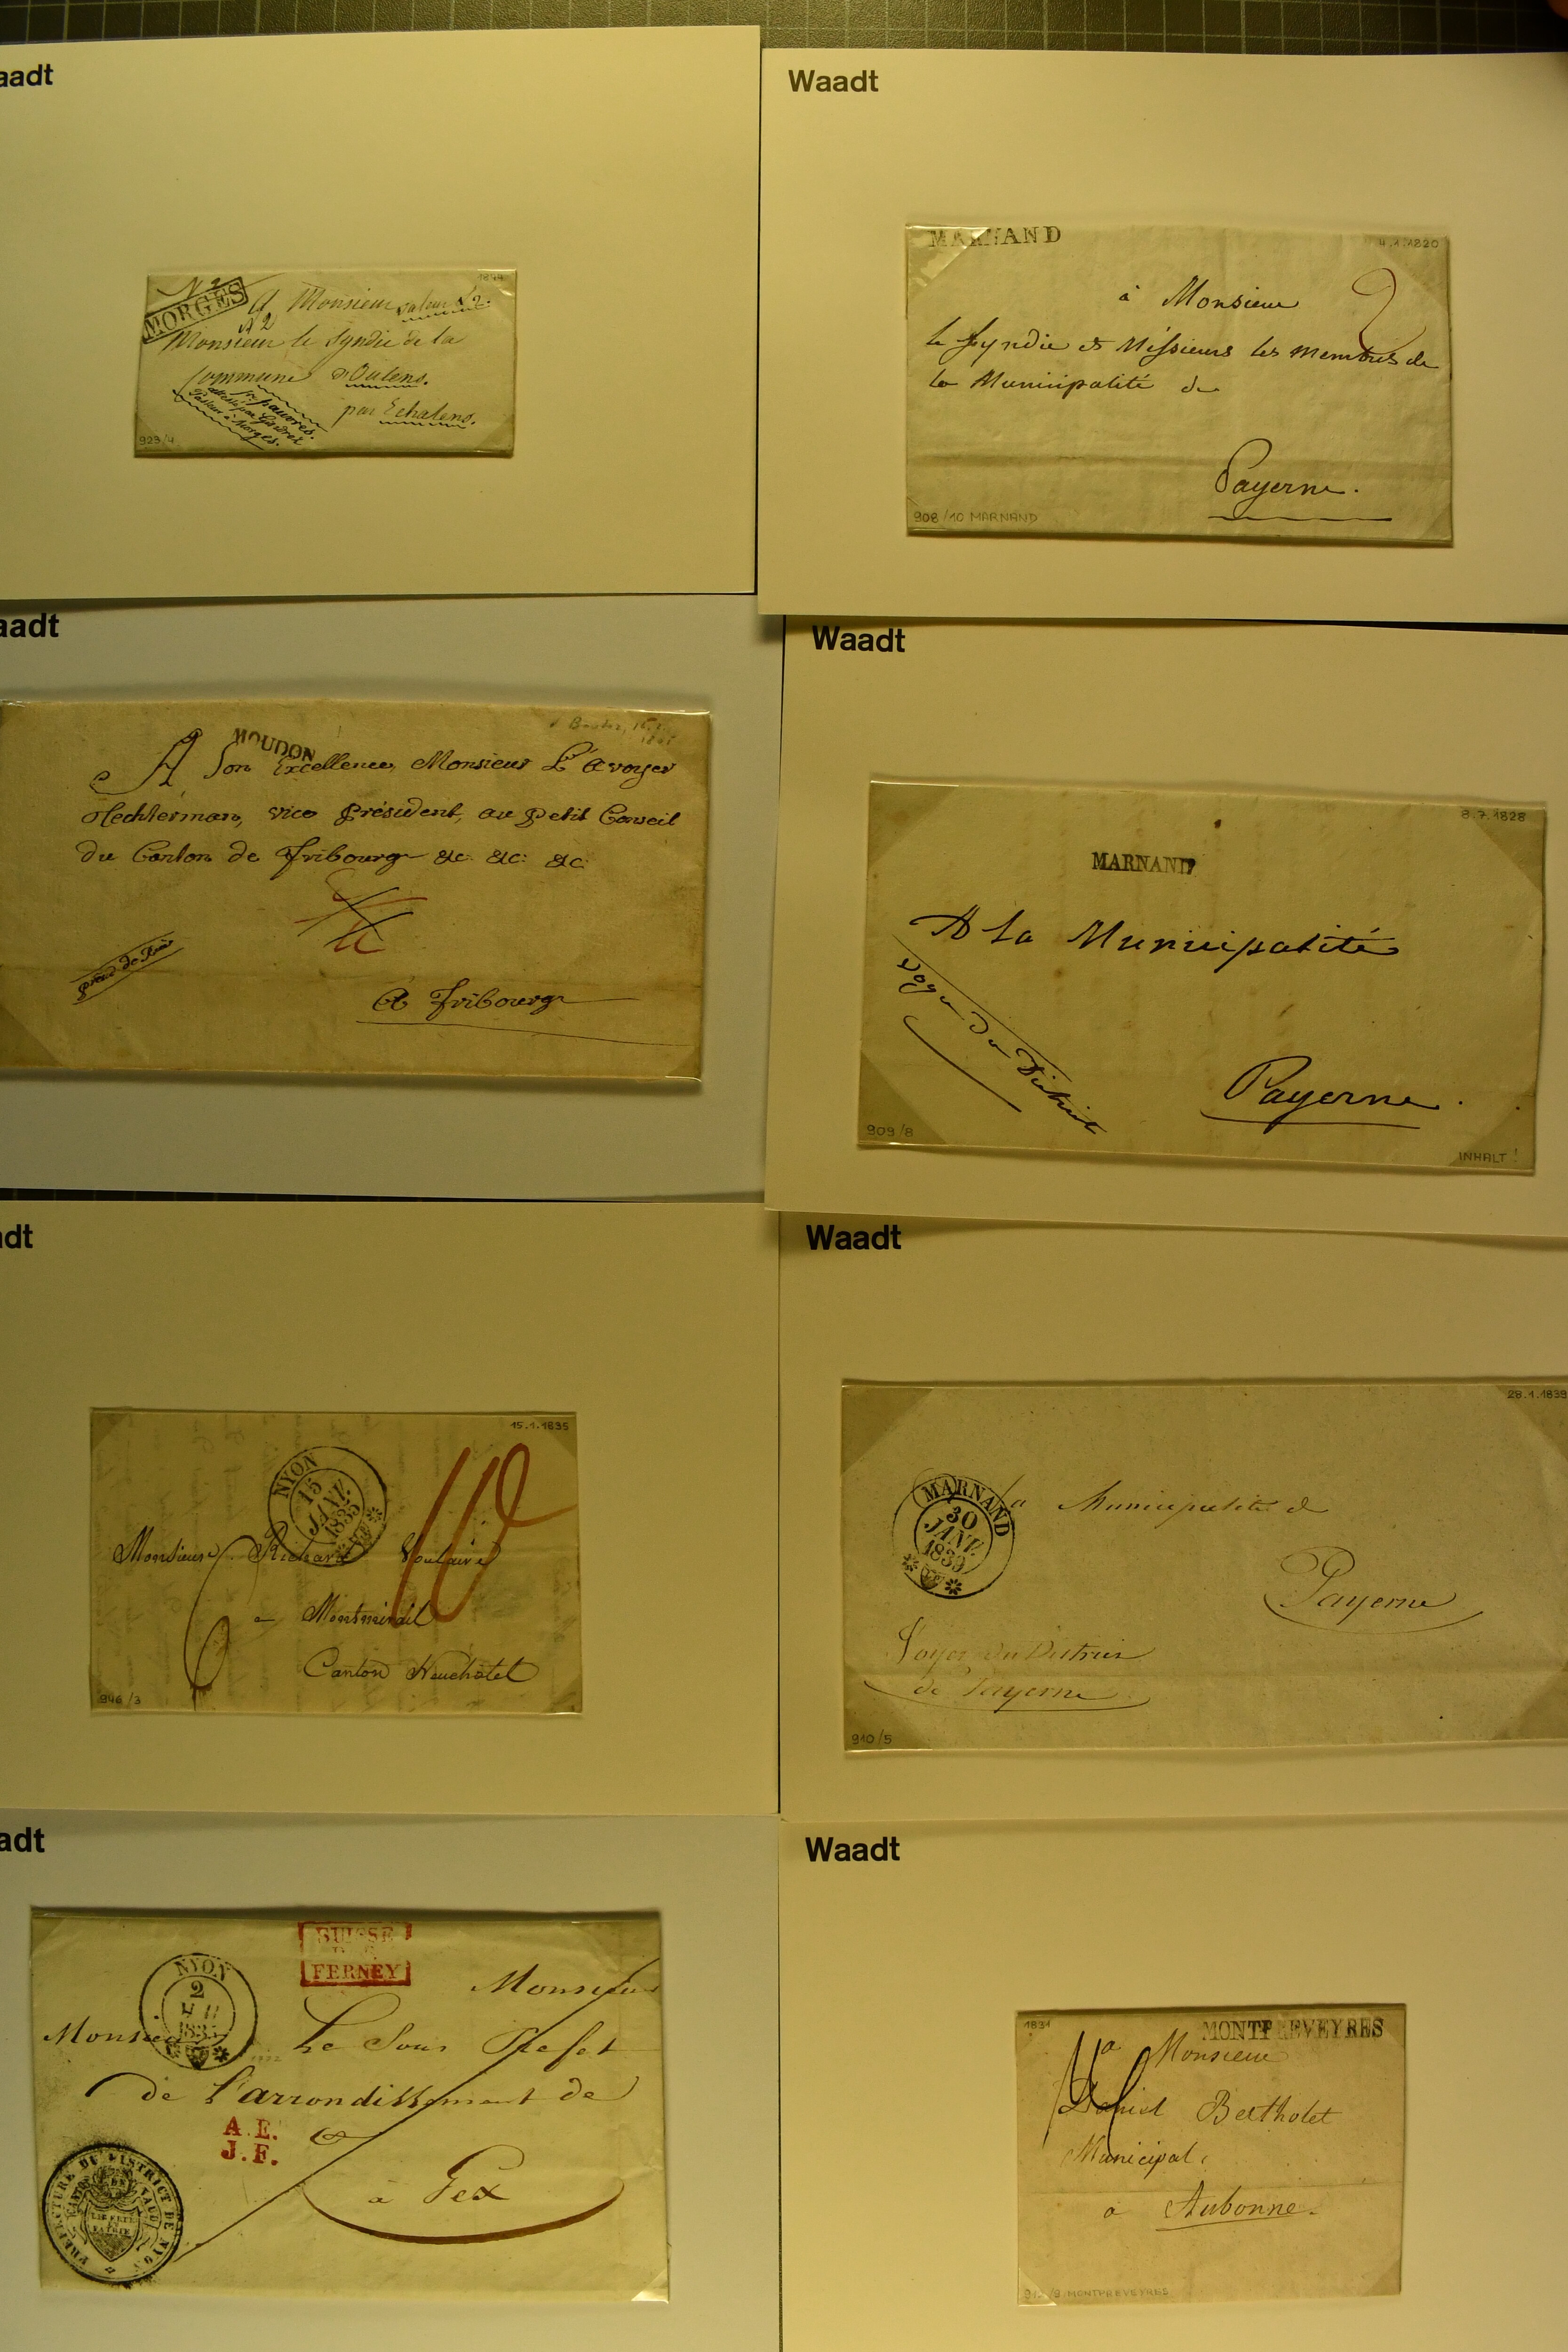 aadt
N 2
MORGES
1844
A Monsieur valeur £2.
N 2
Monsieur le Syndic de la
Commune d'Oulens.
par Echalens.
pr. pauvres.
Pasteur à Morges.
923/4
Waadt
MARNAND
4.1.1820
à Monsieur
2
le Syndic et Messieurs les membres de
la Municipalité de
Payerne.
908/10 MARNAND
aadt
MOUDON
A Son Excellence, Monsieur L'avoyer
Techterman, vice Président, au Petit Conseil
du Canton de Fribourg &c. &c: &c:
A Fribourg
Waadt
8.7.1828
MARNAND
A la Municipalité
Voyer du District
Payerne.
909/8
INHALT!
adt
15.1.1835
NYON
15
JANV.
1835
10
Monsieur Richard
à Montmirail
Canton Neuchâtel
946/3
Waadt
28.1.1839
MARNAND
30
JANV.
1839
La Municipalité d
Payerne
Voyer du District
de Payerne
910/5
adt
SUISSE
PAR
FERNEY
NYON
2
Monsieur
Monsieur Le Sous Prefet
de l'arrondissement de
A.E.
J.F.
à Gex
PREFECTURE DU DISTRICT DE NYON
CANTON DE VAUD
LIBERTE
ET
PATRIE
Waadt
1831
MONTPREVEYRES
a Monsieur
Daniel Bertholet
Municipal,
à Aubonne.
/8 MONTPREVEYRES